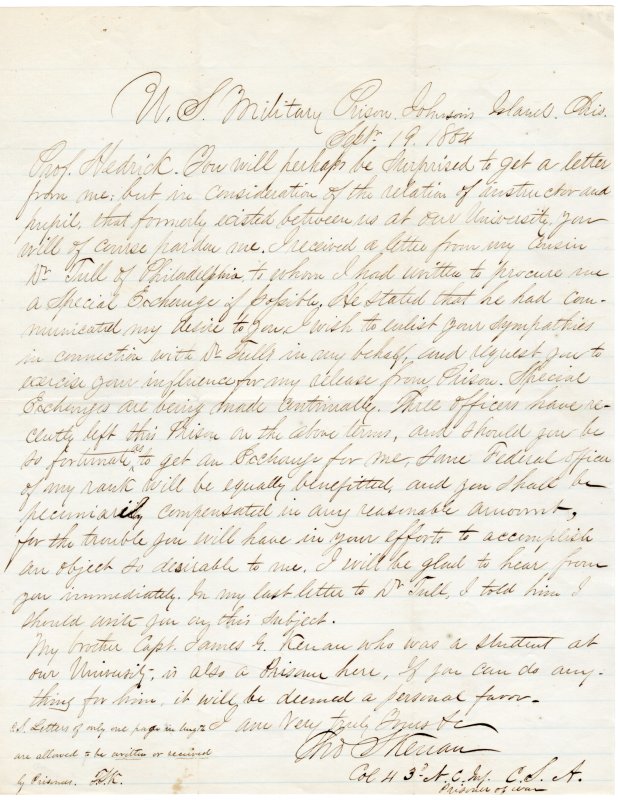 U. S. Military Prison, Johnson's Island, Ohio.
Sept. 19. 1864
Prof. Hedrick. You will perhaps be surprised to get a letter
from me; but in consideration of the relation of instructor and
pupil, that formerly existed between us at our University, you
will of course pardon me. I received a letter from my cousin
Dr Tull of Philadelphia, to whom I had written to procure me
a Special Exchange if possible. He stated that he had com-
municated my desire to you. I wish to enlist your sympathies
in connection with Dr Tull's in my behalf, and request you to
exercise your influence for my release from Prison. Special
Exchanges are being made continually. Three officers have re-
cently left this Prison on the above terms, and should you be
so fortunate as to get an Exchange for me, some Federal officer
of my rank will be equally benefitted, and you shall be
pecuniarily compensated in any reasonable amount,
for the trouble you will have in your efforts to accomplish
an object so desirable to me. I will be glad to hear from
you immediately. In my last letter to Dr Tull, I told him I
should write you on this subject.
My brother Capt. James G. Kenan who was a student at
our University, is also a Prisoner here. If you can do any-
thing for him, it will be deemed a personal favor.
I am Very truly Yours &c
Tho S Kenan
Col 43d N. C. Inf. C. S. A.
Prisoner of war
P.S. Letters of only one page in length
are allowed to be written or received
by Prisoners. T.S.K.